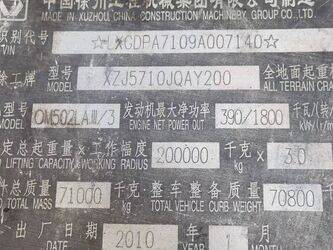 中国徐州工程机械集团有限公司制造
MADE IN XUZHOU CHINA CONSTRUCTION MACHINERY GROUP CO.,LTD
识别代号 ☆LXGDPA7109A007140☆
VIN
徐工牌 型号 XZJ5710JQAY200 全地面起重
MODEL ALL TERRAIN CRA
OM502LAⅢ/3 发动机最大净功率 390/1800 千瓦
MODEL ENGINE NET POWER OUT
定总起重量×工作幅度 200000 千克× 3.0
LIFTING CAPACITY×WORKING RADIUS
件总质量 71000 千克 整车整备质量 70800
TOTAL MASS TOTAL VEHICLE CURB WEIGHT
出厂日期 2010 年 1 月
YEAR MONTH